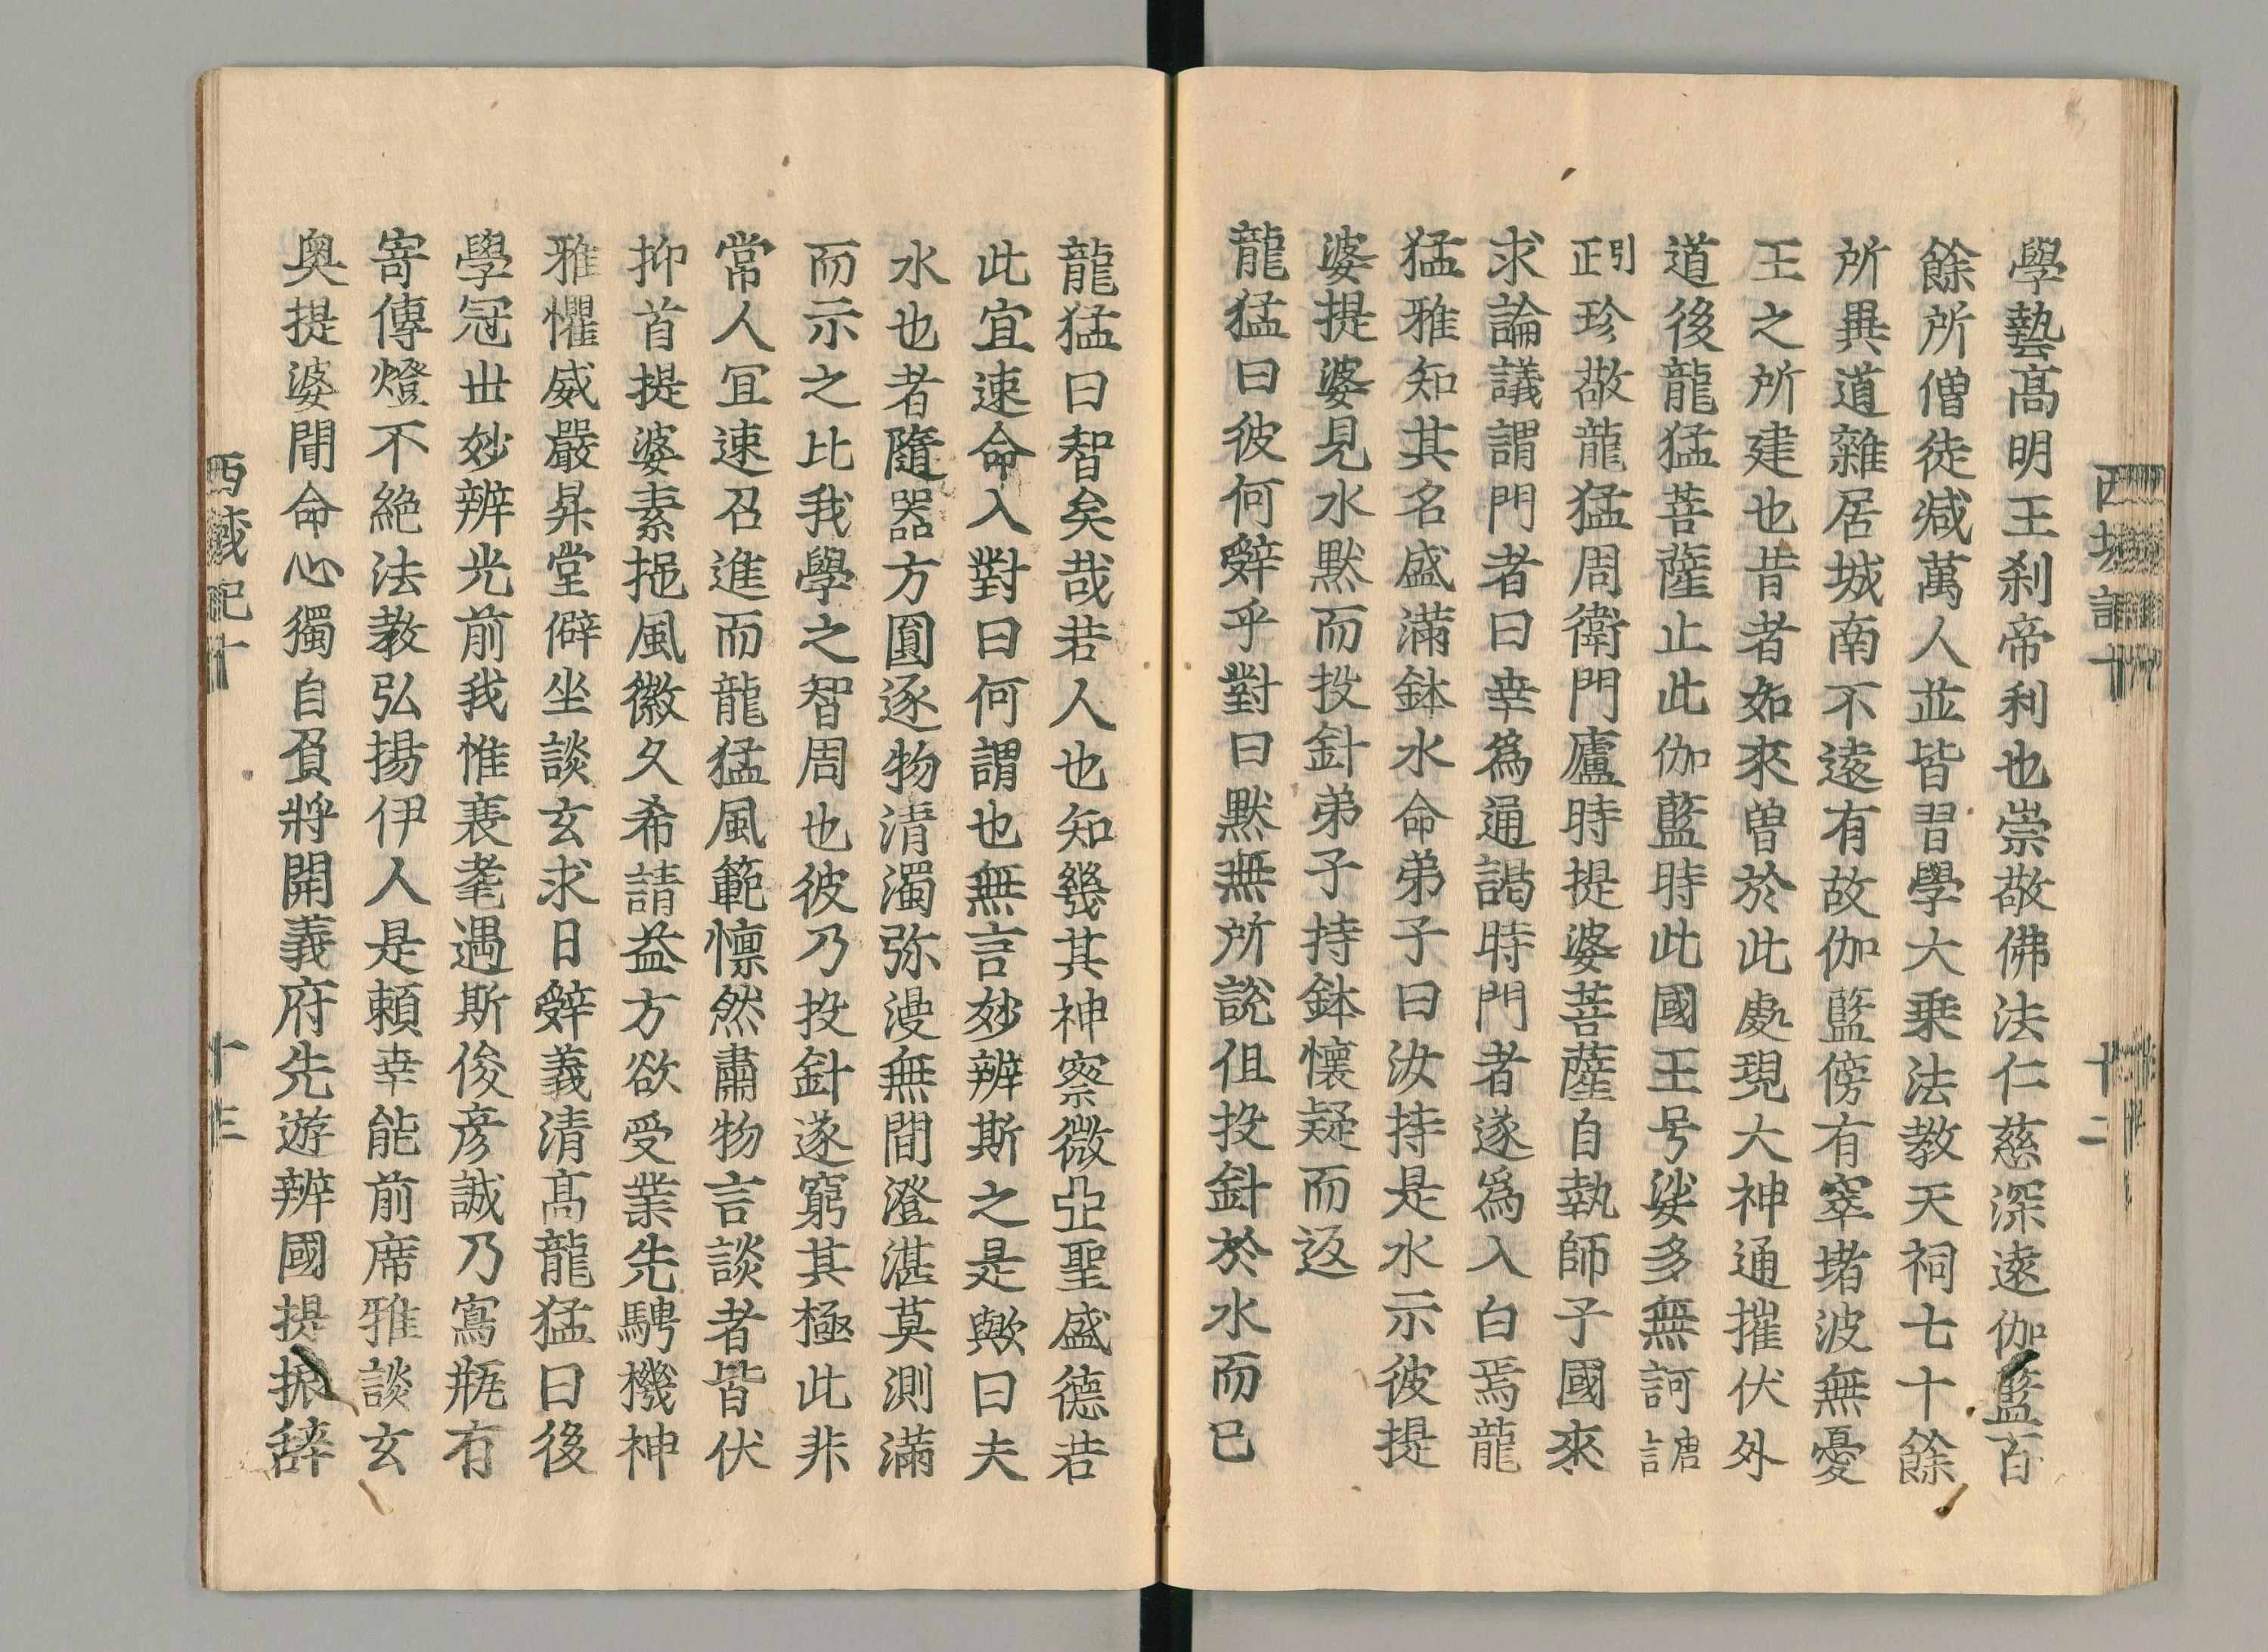 西域記十　十二
學藝髙明王刹帝利也崇敬佛法仁慈深逺伽藍百
餘所僧徒减萬人並皆習學大乗法教天祠七十餘
所異道雜居城南不逺有故伽藍傍有窣堵波無憂
王之所建也昔者如來曽於此處現大神通摧伏外
道後龍猛菩薩止此伽藍時此國王号娑多無訶唐言
引正珍敬龍猛周衛門廬時提婆菩薩自執師子國來
求論議謂門者曰幸爲通謁時門者遂爲入白焉龍
猛雅知其名盛滿鉢水命弟子曰汝持是水示彼提
婆提婆見水黙而投針弟子持鉢懷疑而返
龍猛曰彼何辤乎對曰黙無所說但投針於水而已
龍猛曰智矣哉若人也知幾其神察微亞聖盛德若
此宜速命入對曰何謂也無言妙辨斯之是歟曰夫
水也者隨器方圓逐物清濁弥漫無間澄湛莫測滿
而示之比我學之智周也彼乃投針遂窮其極此非
常人冝速召進而龍猛風範懍然肅物言談者皆伏
抑首提婆素挹風徽久希請益方欲受業先騁機神
雅懼威嚴昇堂僻坐談玄求日辤義清髙龍猛曰後
學冠世妙辨光前我惟衰耄遇斯俊彦誠乃寫瓶有
寄傳燈不絶法教弘揚伊人是頼幸能前席雅談玄
奥提婆聞命心獨自負將開義府先遊辨國提振辞
西域記十　十三